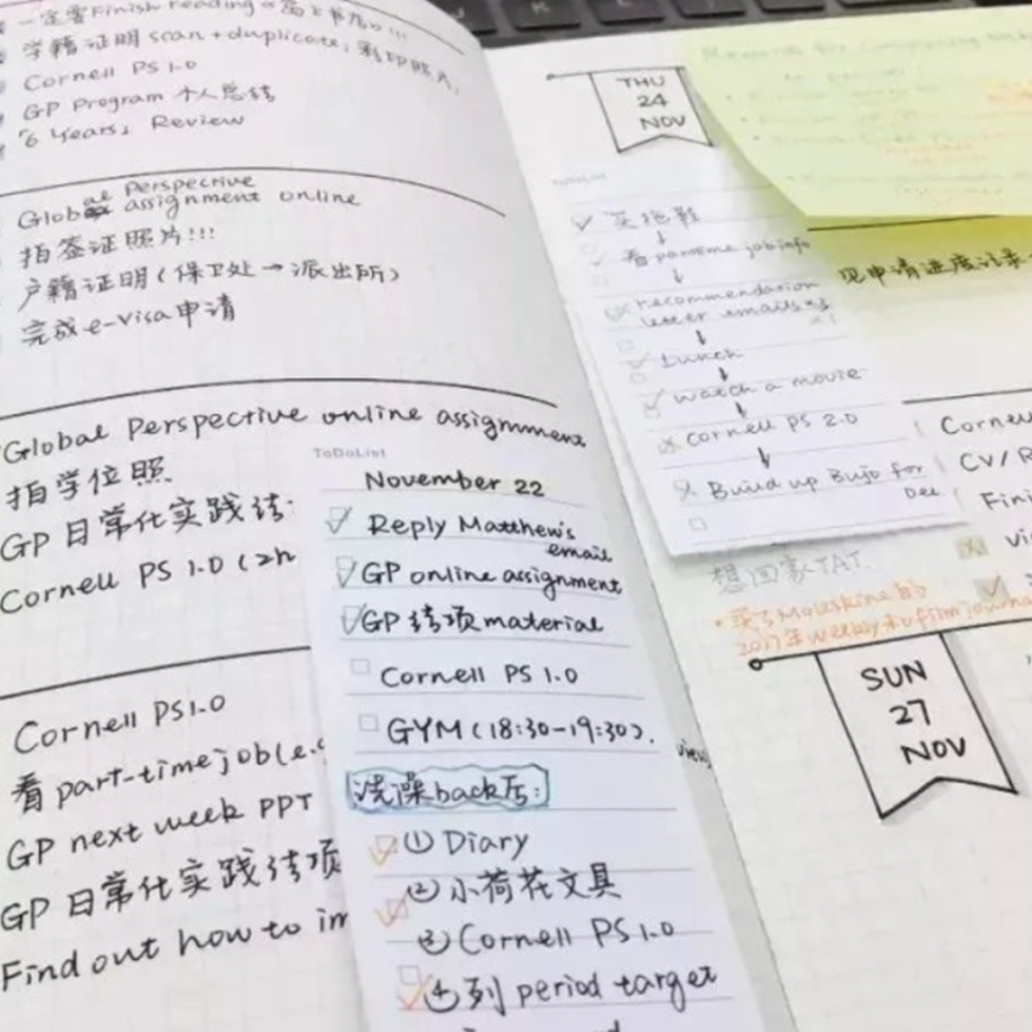 一定要Finish reading
学籍证明scan+duplicate;彩印照片;
Cornell PS 1.0
GP Program 个人总结
6 Years, Review
Global Perspective
assignment online
拍签证照片!!!
户籍证明(保卫处→派出所)
完成e-visa申请
Global Perspective online assignment
拍学位照
GP日常化实践结
Cornell PS 1.0 (2h
Cornell PS1.0
看part-time job(e.g
GP next week PPT
GP日常化实践结项
Find out how to im
ToDoList
November 22
Reply Matthew's
email
GP online assignment
GP结项material
Cornell PS 1.0
GYM(18:30-19:30).
洗澡back后:
① Diary
② 小荷花文具
③ Cornell PS 1.0
④ 列period target
THU
24
NOV
ToDoList
买拖鞋
↓
看parttime job info
↓
recommendation
letter emails
↓
Lunch
↓
watch a movie
↓
Cornell PS 2.0
↓
Build up Bujo for
Dec
见申请进度记录
Cornell
CV/R
Fini
Vi
想回家TAT.
·买了Moleskine的
2017年weekly和film journ
SUN
27
NOV